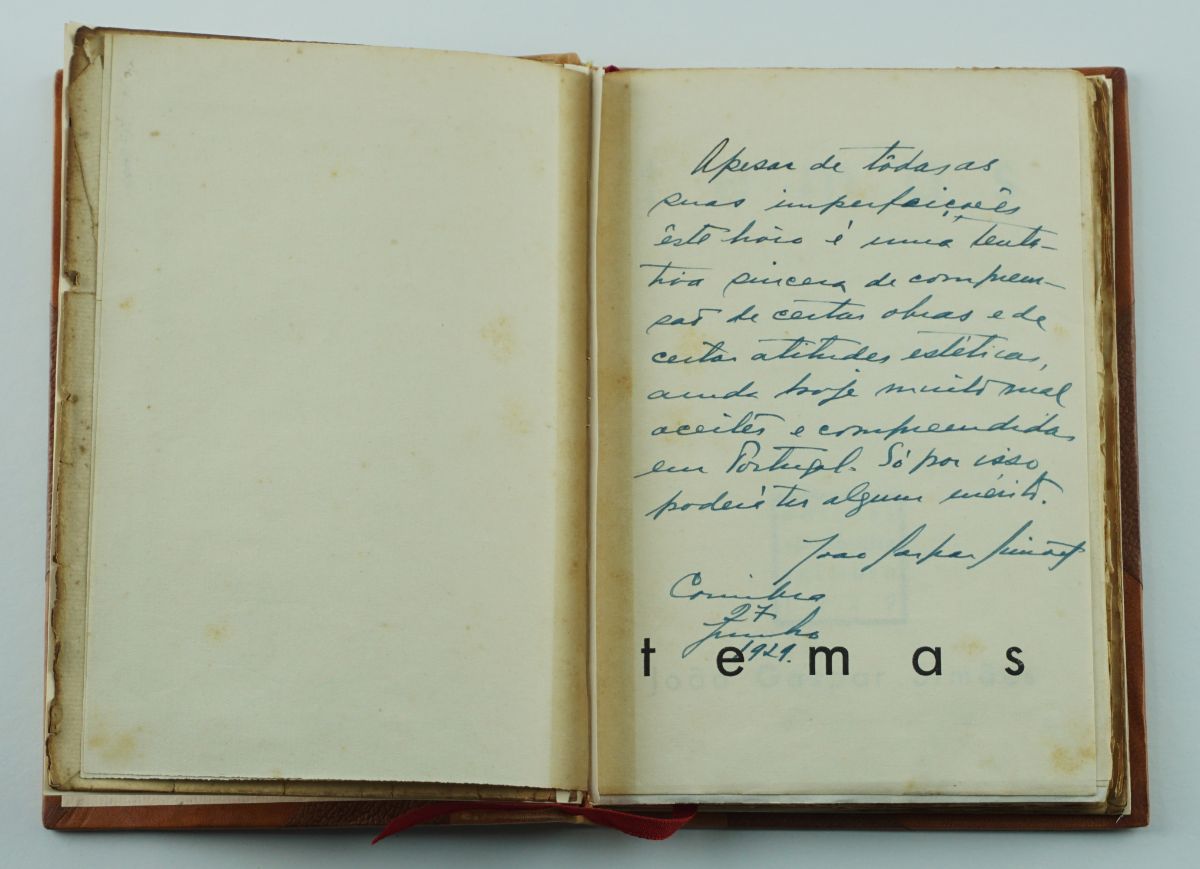 Apesar de tôdas as
suas imperfeições
êste livro é uma tenta-
tiva sincera de compreen-
são de certas obras e de
certas atitudes estéticas,
ainda hoje muito mal
aceites e compreendidas
em Portugal. Só por isso
poderá ter algum mérito.
João Gaspar Simões
Coimbra
27
Junho
1929.
temas
João Gaspar Simões